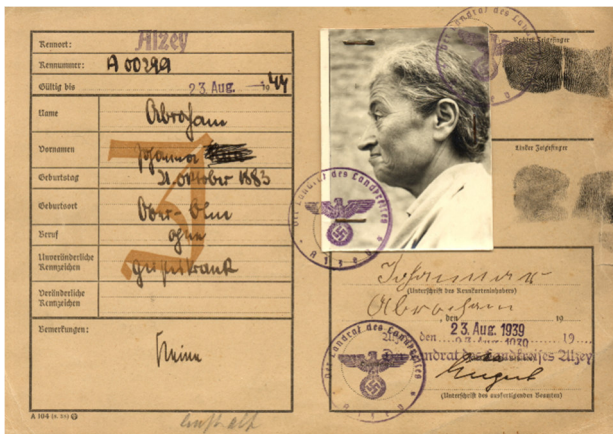 Kennort: Alzey
Kennummer: A 00299
Gültig bis 23. Aug. 1944
Name Abraham
Vornamen Johanna
Geburtstag 31. Oktober 1883
Geburtsort Ober-Olm
Beruf ohne
Unveränderliche Kennzeichen geisteskrank
Veränderliche Kennzeichen
Bemerkungen:
Keine
A 104
J
Der Landrat des Landkreises
Alzey
Rechter Zeigefinger
Linker Zeigefinger
Johanna
(Unterschrift des Kennkarteninhabers)
Abraham
Alzey, den 23. Aug. 1939 19
Der Landrat des Landkreises Alzey
(Unterschrift des ausfertigenden Beamten)
Der Landrat des Landkreises
Alzey